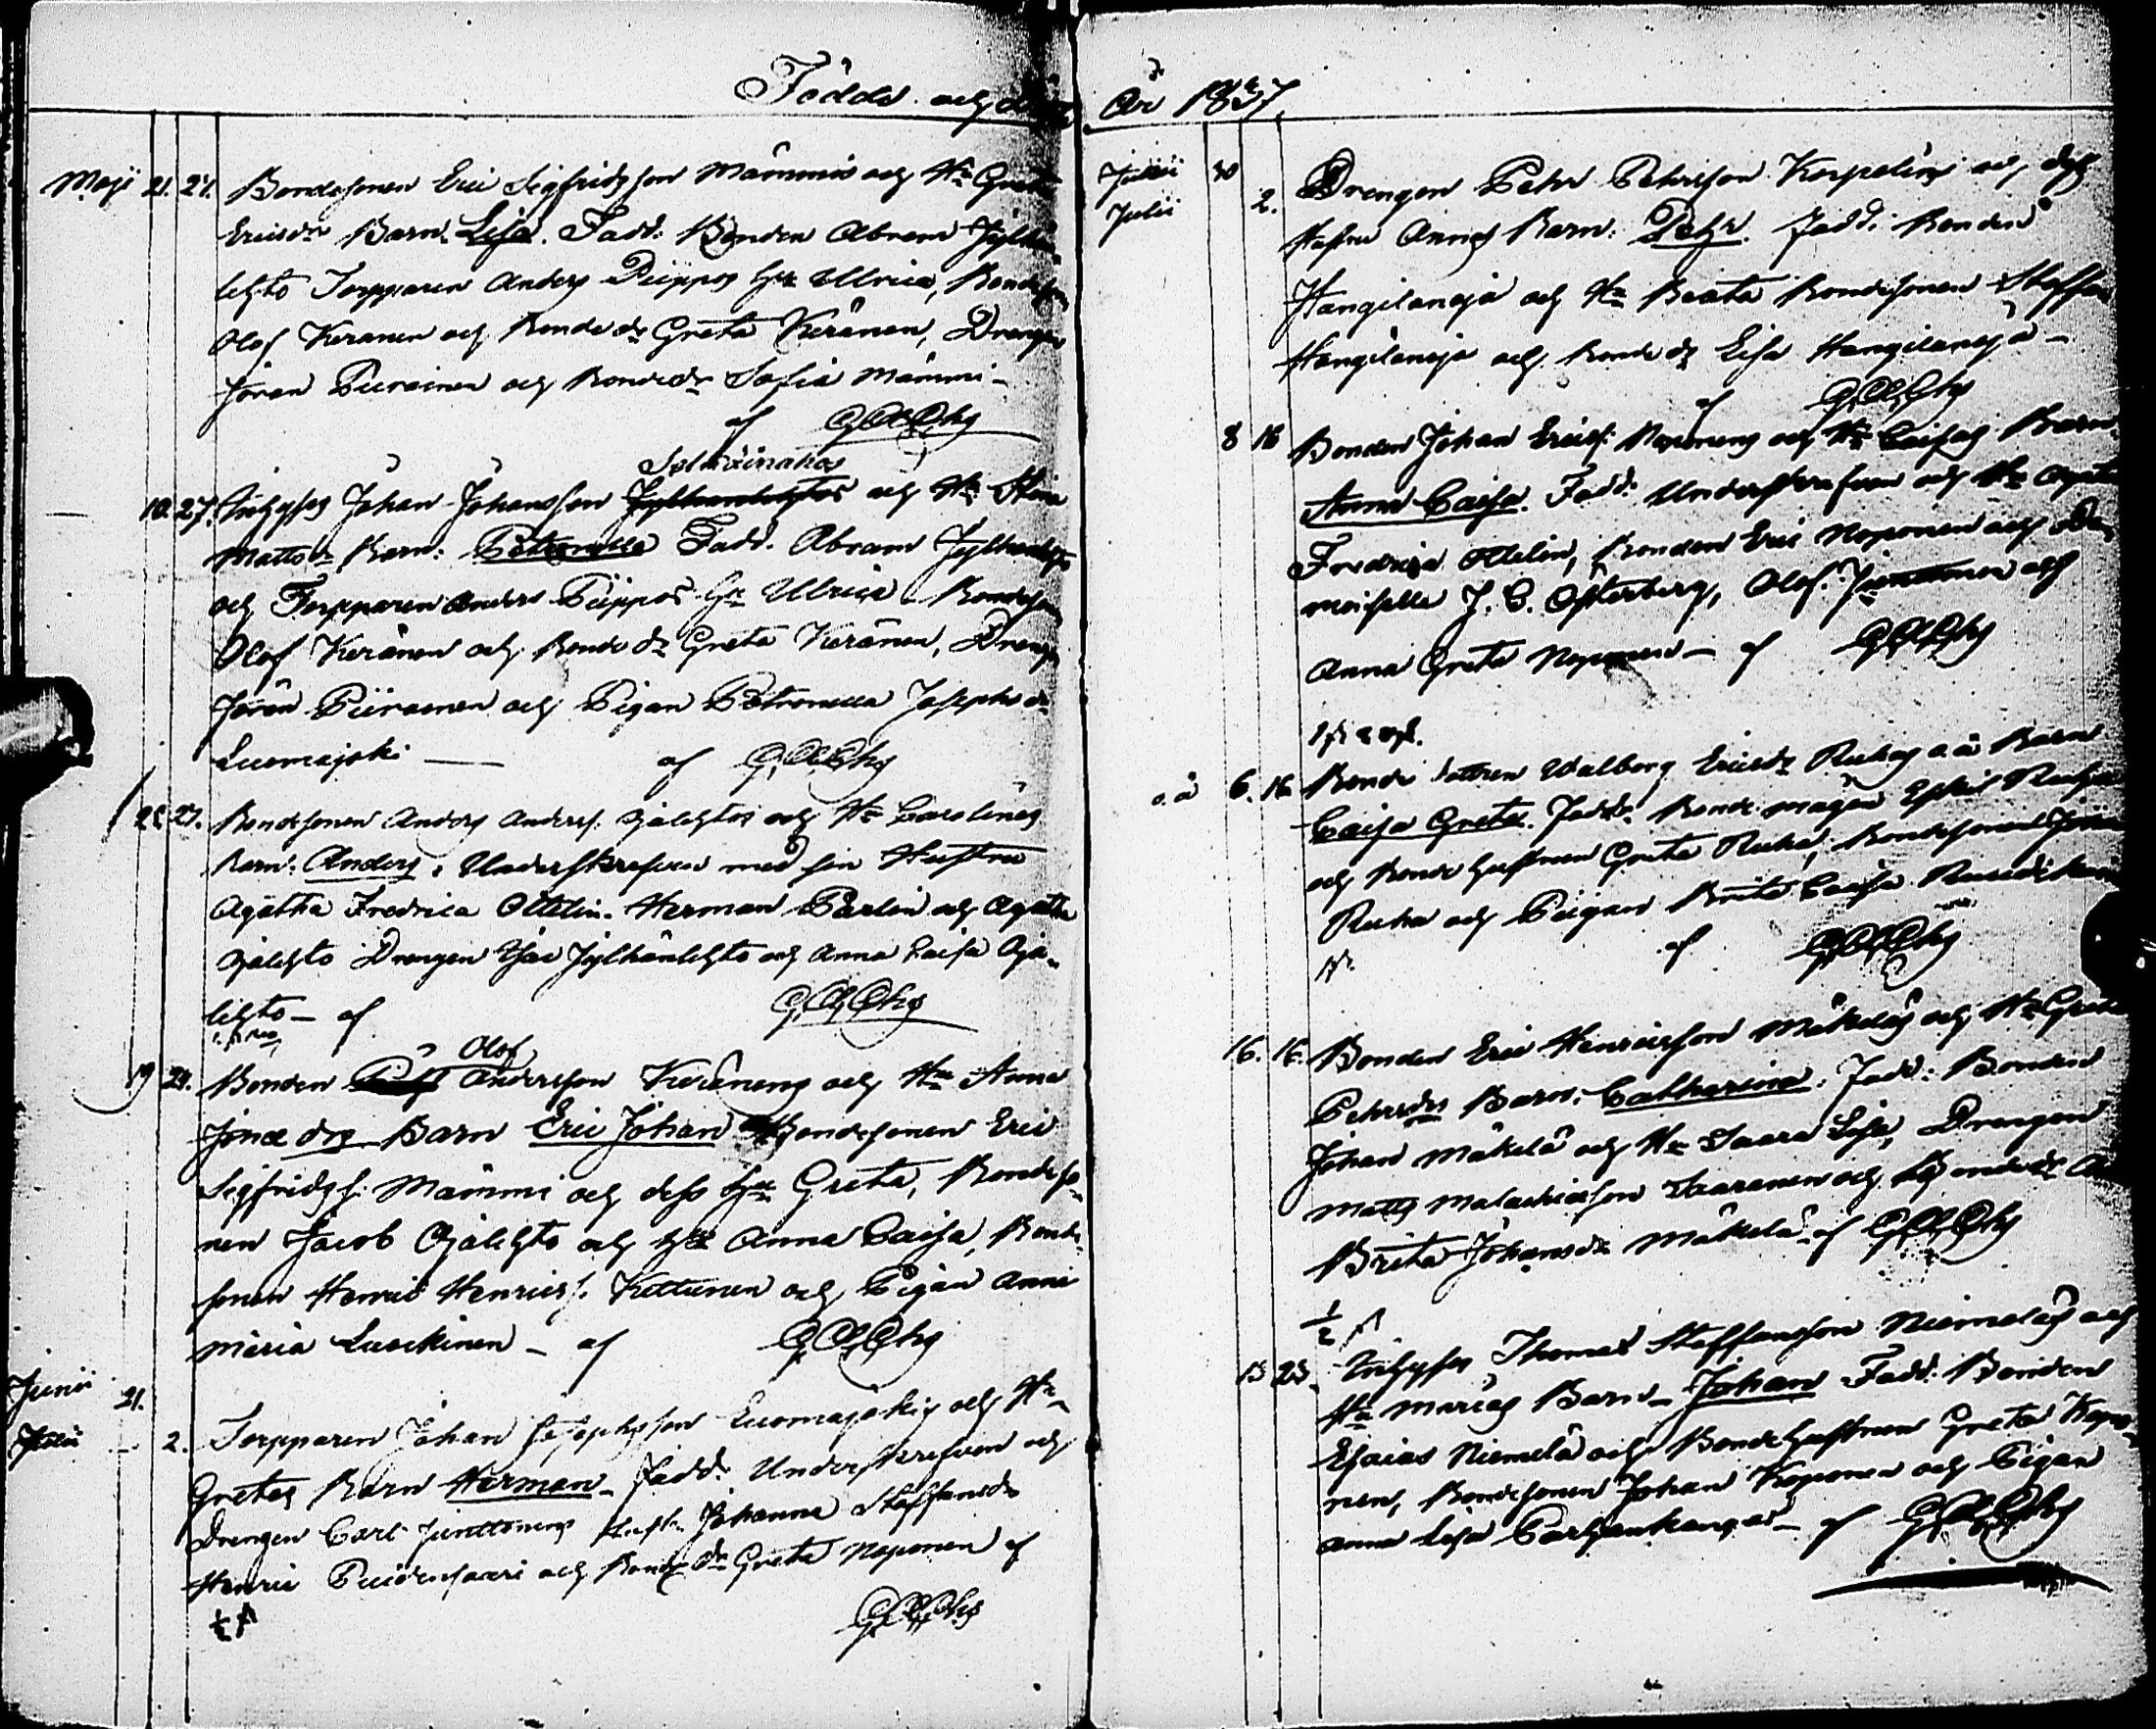 Födde och
År 1837.
Maji 21. 27. Bondesonen Eric Sigfridsson Mämmis och Hu Greta
Ericsdr Barn. Lisa. Fadd: Bonden Abram Jylhän
lehto Torpparen Anders Piippos Hu Ulrica, Bondeson
Olof Keränen och Bondedr Greta Keränen, Drengen
Jöran Piirainen och Bondedr Sofia Mämmi -
af
10. 27. Inhyses Johan Johansson Jylhänlehtos och Hu Stina
Mattsdr Barn: Petronella Fadd. Abram Jylhänlehto
och Torpparen Anders Piippos Hu Ulrica Bondeson
Olof Keränen och Bondedr Greta Keränen, Dreng
Jöran Piirainen och Pigan Petronella Josephsdr
Luomajoki — af
22. 27. Bondesonen Anders Anderss. Ojalehtos och Hu Carolinas
Barn: Anders. Underskrefven med sin Hustru
Agatha Fredrica Ottelin. Herman Parlin och Agatha
Ojalehto Drengen Esac Jylhänlehto och Anna Caisa Oja-
lehto - af
Olof
19 28. Bonden Andersson Keränens och Hu Anna
Jonædrs Barn Eric Johan Bondesonen Eric
Sigfridss. Mämmi och dess Hu Greta, Bondeso-
nen Jacob Ojalehto och Hu Anna Caisa, Bonde-
sonen Henric Henricss. Kettunen och Pigan Anna
Maria Leskinen - af
Junii 21.
Julii 2. Torpparen Johan Josephsson Luomajokis och Hu
Gretas Barn Herman - Fadd: Underskrefven och
Drengen Carl Junttonens Johanna Staffansdr
Henric och Bondedr Greta Noponen af
½
Junii 30
Julii 2. Drengen Pehr Pehrsson Korpelins och dess
Hustru Annas Barn: Pehr. Fadd: Bonden
Hangilanoja och Hu Beata Bondesonen Staffan
Hangilanoja och Bondedr Lisa Hangilanoja -
af
8 16 Bonden Johan Ericss. Noponens och Hu Caisas Barn
Anna Caisa. Fadd: Underskrefven och Hu Agata
Fredrica Ottelin, Bonden Eric Noponen och De-
moiselle J. C. Österberg, Olof Junttonen och
Anna Greta Noponen - af
o. ä 6. 16 Bonde dottren Walborg Ericsdr Ruhas o. ä Barn
Caisa Greta. Fadd: Bonde mågen
och Bonde hustrun Greta Ruha, Bondesonen
Ruha och Pigan Brita Caisa
af
16. 16. Bonden Eric Henricsson Mäkeläs och Hu Greta
Pehrsdrs Barn: Catharina. Fadd: Bonden
Johan Mäkelä och Hu Saara Lisa, Drengen
Matts Malachiasson Saaranen och Bondedr
Brita Johansdr Mäkelä - af
½
13 23. Inhyses Thomas Staffansson Niemeläs och
Hu Marias Barn - Johan Fadd: Bonden
Esaias Niemelä och Bondehustrun Greta Kopo-
nen, Bondesonen Johan Koponen och Pigan
Anna Lisa - af